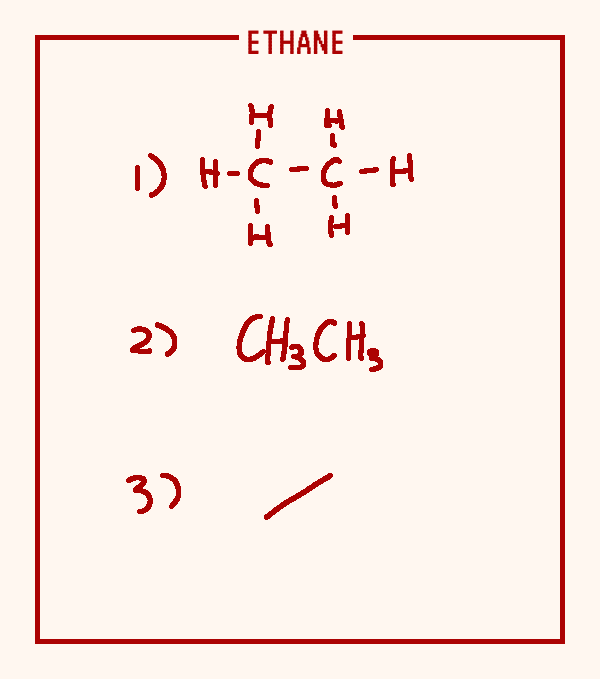 ETHANE
H H
1) H-C-C-H
H H
2) CH₃CH₃
3)